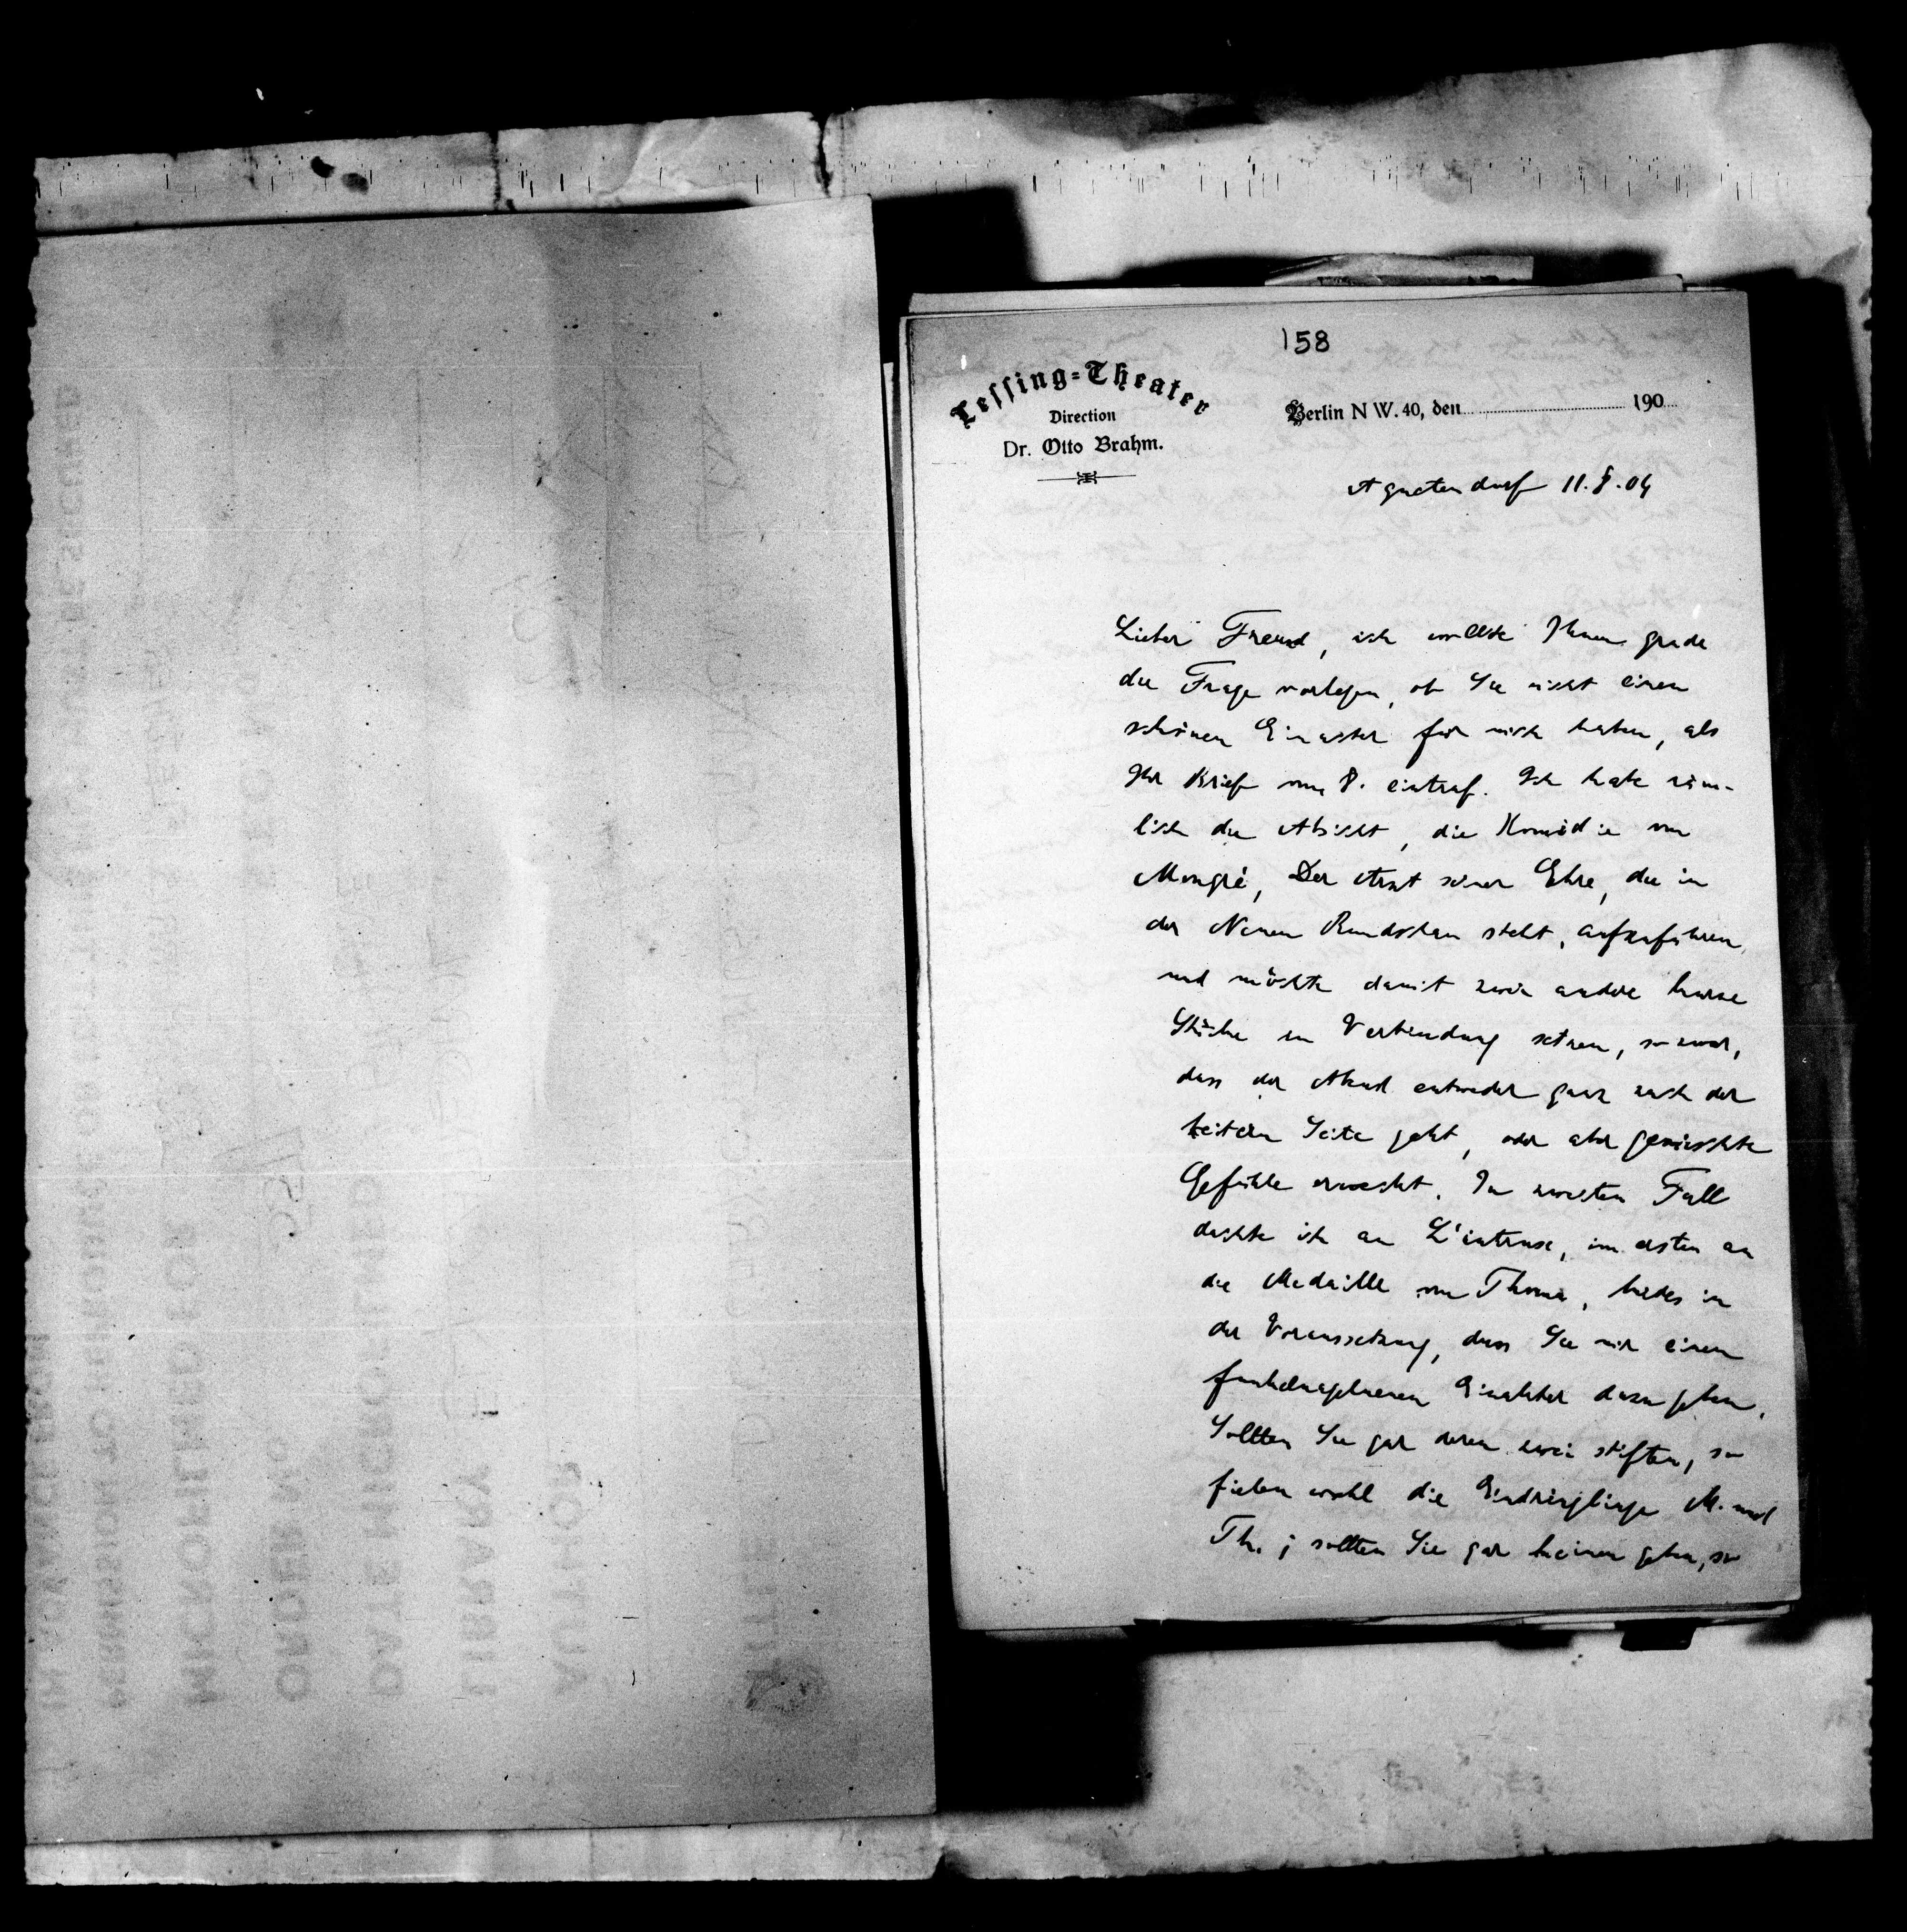 158
Lessing-Theater
Direction
Dr. Otto Brahm.
Berlin N W. 40, den 190
Agnetendorf 11.8.04
Lieber Freund, ich wollte Ihnen grade
die Frage vorlegen, ob Sie nicht einen
schönen Einakter für mich haben, als
Ihr Brief vom 8. eintraf. Ich habe näm-
lich die Absicht, die Komödie von
Mongré, Der Arzt seiner Ehre, die in
der Neuen Rundschau steht, aufzuführen,
und möchte damit zwei andre kurze
Stücke in Verbindung setzen, so zwar,
dass der Abend entweder ganz nach der
heitern Seite geht, oder aber gemischte
Gefühle erweckt. Im zweiten Fall
dachte ich an L'intruse, im ersten an
die Medaille von Thoma, beides in
der Voraussetzung, dass Sie mir einen
funkelnagelneuen Einakter dazu geben.
Sollten Sie gar deren zwei stiften, so
fielen wohl die Eindringlinge M. und
Th.; sollten Sie gar keinen geben, so